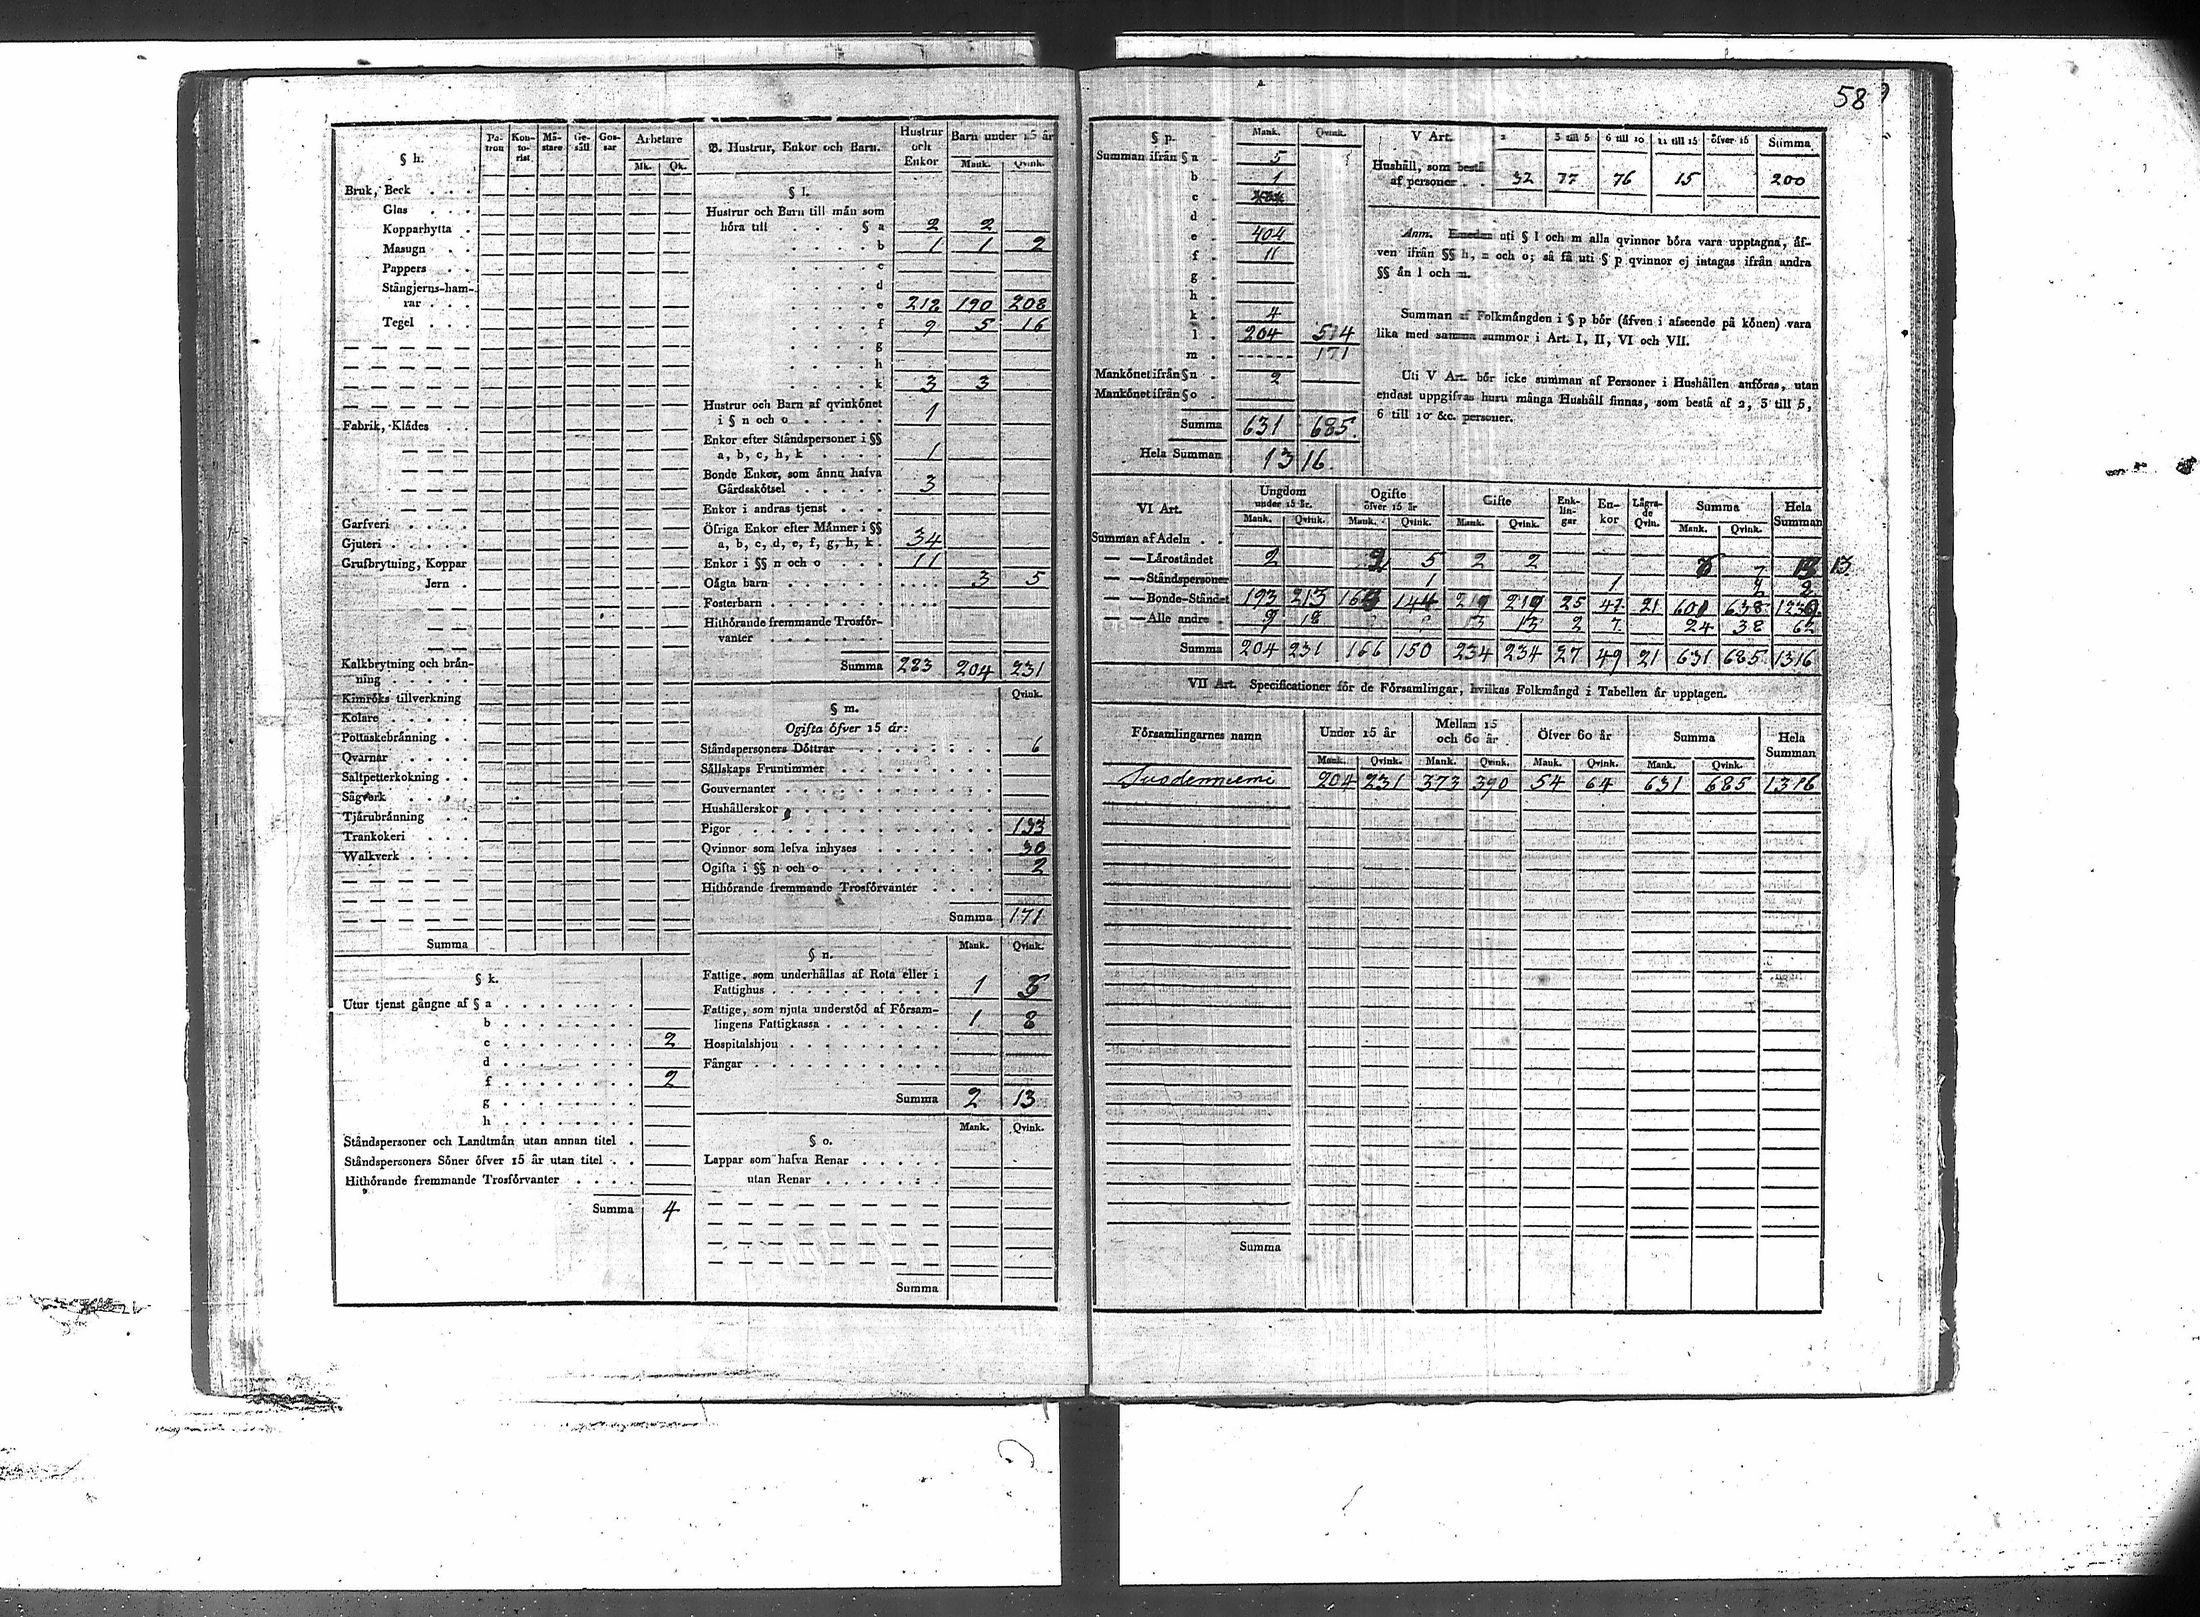 58
§ h.
Patron
Kontorist
Mästare
Gesäll
Gossar
Arbetare
Mk. Qk.
Bruk, Beck . . .
Glas . . .
Kopparhytta .
Masugn . .
Pappers . .
Stångjerns-hamrar . . .
Tegel . . .
Fabrik, Klådes . .
Garfveri . . . .
Gjuteri . . . . .
Grufbrytning, Koppar
Jern .
Kalkbrytning och bränning . . . . .
Kimröks tillverkning
Kolare . . . . .
Pottaskebränning . .
Qvarnar . . . .
Saltpetterkokning . .
Sågverk . . . .
Tjärubränning . .
Trankokeri . . .
Walkverk . . . .
Summa
§ k.
Utur tjenst gångne af § a . . . . . . . .
b . . . . . . . .
c . . . . . . . . 2
d . . . . . . . .
f . . . . . . . . 2
g . . . . . . . .
h . . . . . . . .
Ståndspersoner och Landtmän utan annan titel .
Ståndspersoners Söner öfver 15 år utan titel . .
Hithörande fremmande Trosförvanter . . . .
Summa 4
B. Hustrur, Enkor och Barn.
Hustrur och Enkor
Barn under 15 år
Mank. Qvink.
§ l.
Hustrur och Barn till män som
höra till . . . § a 2 2
. . . . b 1 1 2
. . . . c
. . . . d
. . . . e 212 190 208
. . . . f 9 5 16
. . . . g
. . . . h
. . . . k 3 3
Hustrur och Barn af qvinkönet
i § n och o . . . . . 1
Enkor efter Ståndspersoner i §§
a, b, c, h, k . . . . 1
Bonde Enkor, som ännu hafva
Gårdsskötsel . . . . . 3
Enkor i andras tjenst . . .
Öfriga Enkor efter Männer i §§
a, b, c, d, e, f, g, h, k . 34
Enkor i §§ n och o . . . 11
Oägta barn . . . . . . 3 5
Fosterbarn . . . . . .
Hithörande fremmande Trosförvanter . . . . . . .
Summa 283 204 231
Qvink.
§ m.
Ogifta öfver 15 år:
Ståndspersoners Döttrar . . . . . . . 6
Sällskaps Fruntimmer . . . . . . . .
Gouvernanter . . . . . . . . . .
Hushållerskor . . . . . . . . . .
Pigor . . . . . . . . . . . . . 133
Qvinnor som lefva inhyses . . . . . . 30
Ogifta i §§ n och o . . . . . . . . 2
Hithörande fremmande Trosförvanter . . . .
Summa 171
Mank. Qvink.
§ n.
Fattige, som underhållas af Rota eller i
Fattighus . . . . . . . . . 1 5
Fattige, som njuta understöd af Församlingens Fattigkassa . . . . . . . 1 8
Hospitalshjon . . . . . . . . .
Fångar . . . . . . . . . . .
Summa 2 13
Mank. Qvink.
§ o.
Lappar som hafva Renar . . . . .
utan Renar . . . . . . .
Summa
§ p.
Mank. Qvink.
Summan ifrån § a . 5
b . 1
c .
d .
e . 404
f . 11
g .
h .
k . 4
l . 204 514
m . 171
Mankönet ifrån § n . 2
Mankönet ifrån § o .
Summa 631 685
Hela Summan 1316.
V Art. 2 3 till 5 6 till 10 11 till 15 öfver 15 Summa
Hushåll, som bestå
af personer . . 32 77 76 15 200
Anm. Emedan uti § l och m alla qvinnor böra vara upptagna, äfven ifrån §§ h, n och o; så få uti § p qvinnor ej intagas ifrån andra
§§ än l och m.
Summan af Folkmängden i § p bör (äfven i afseende på könen) vara
lika med samma summor i Art. I, II, VI och VII.
Uti V Art. bör icke summan af Personer i Hushållen anföras, utan
endast uppgifvas huru många Hushåll finnas, som bestå af 2, 3 till 5,
6 till 10 &c. personer.
VI Art.
Ungdom under 15 år.
Ogifte öfver 15 år
Gifte
Enklingar
Enkor
Lägrade Qvin.
Summa
Hela Summan
Mank. Qvink. Mank. Qvink. Mank. Qvink. Mank. Qvink.
Summan af Adeln . .
— — Läroståndet 2 2 5 2 2 6 7 13 13
— — Ståndspersoner 1 1 2 2
— — Bonde-Ståndet 193 213 163 144 219 219 25 41 21 601 638 1239
— — Alle andre . 9 18 13 13 2 7 24 38 62
Summa 204 231 166 150 234 234 27 49 21 631 685 1316
VII Art. Specificationer för de Församlingar, hvilkas Folkmängd i Tabellen är upptagen.
Församlingarnes namn
Under 15 år
Mellan 15 och 60 år
Öfver 60 år
Summa
Hela Summan
Mank. Qvink. Mank. Qvink. Mank. Qvink. Mank. Qvink.
Suodenniemi 204 231 373 390 54 64 631 685 1316
Summa